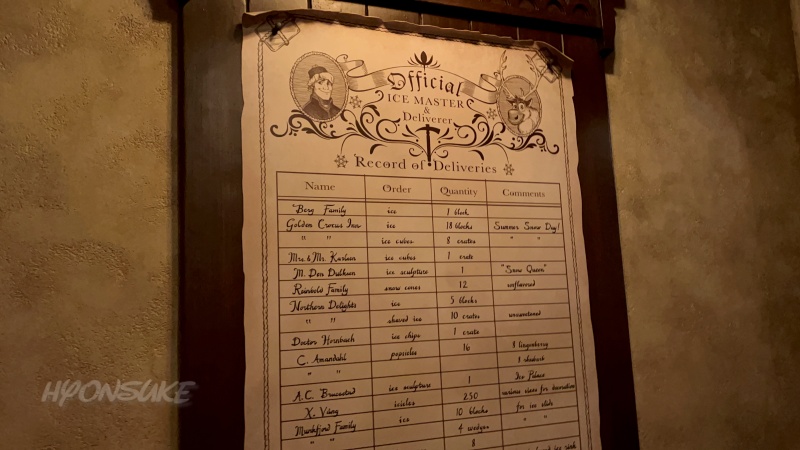 Official
ICE MASTER
&
Deliverer
Record of Deliveries
Name Order Quantity Comments
Berg Family ice 1 block
Golden Crocus Inn ice 18 blocks Summer Snow Day!
" " ice cubes 8 crates " "
Mrs. & Mr. ice cubes 1 crate
M. Don ice sculpture 1 "Snow Queen"
Reinbold Family snow cones 12 unflavored
Northern Delights ice 5 blocks
" " shaved ice 10 crates unsweetened
Doctor Hornbach ice chips 1 crate
C. Amundahl popsicles 16 8 lingonberry
" " 8 rhubarb
A.C. ice sculpture 1 Ice Palace
X. Väng icicles 250 various sizes for decoration
Family ice 10 blocks for ice slide
" " 4 wedges " "
8
HYONSUKE